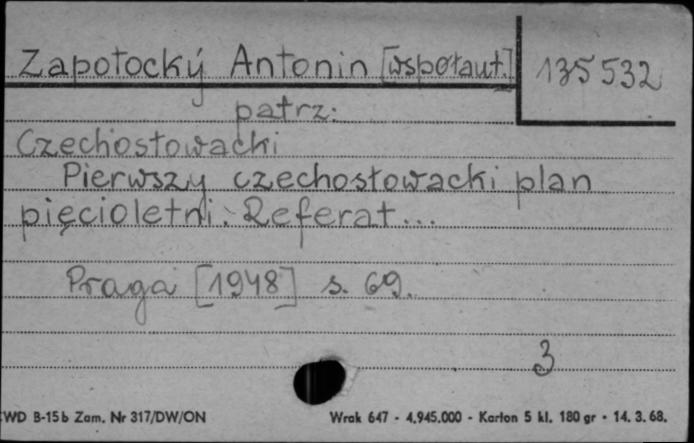 Zapotocký Antonin [współaut.] 135532
patrz:
Czechosłowacki
Pierwszy czechosłowacki plan
pięcioletni. Referat...
Praga [1948] s. 69.
3
WD B-15b Zam. Nr 317/DW/ON Wrak 647 - 4.945.000 - Karton 5 kl. 180 gr - 14. 3. 68.